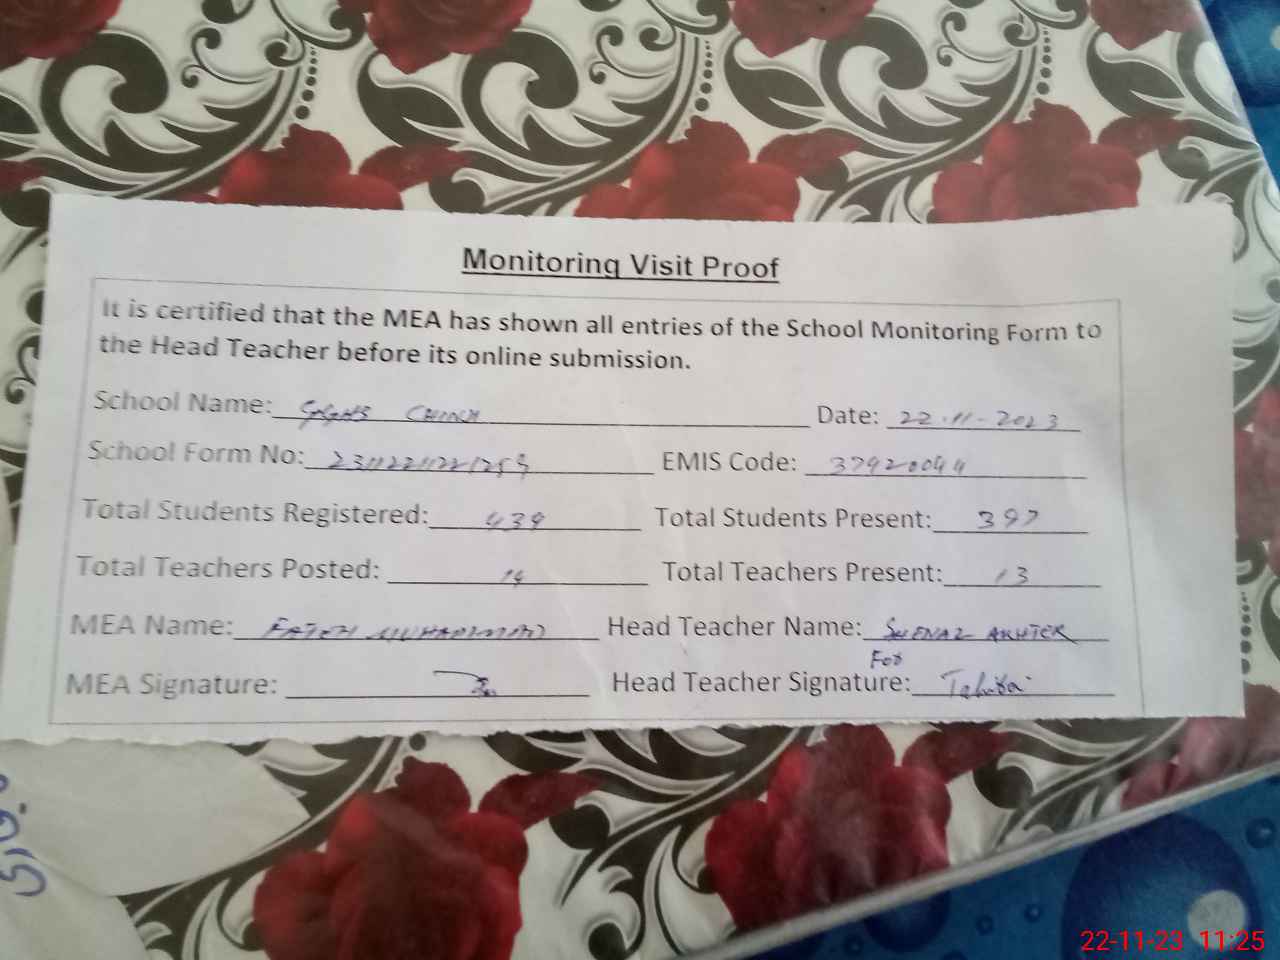 Monitoring Visit Proof
It is certified that the MEA has shown all entries of the School Monitoring Form to
the Head Teacher before its online submission.
School Name: GGHS Date: 22-11-2023
School Form No: EMIS Code: 37920044
Total Students Registered: 439 Total Students Present: 397
Total Teachers Posted: 14 Total Teachers Present: 13
MEA Name: FATEH MUHAMMAD Head Teacher Name: SHENAZ AKHTER
For
MEA Signature: Head Teacher Signature: Tahira
22-11-23 11:25